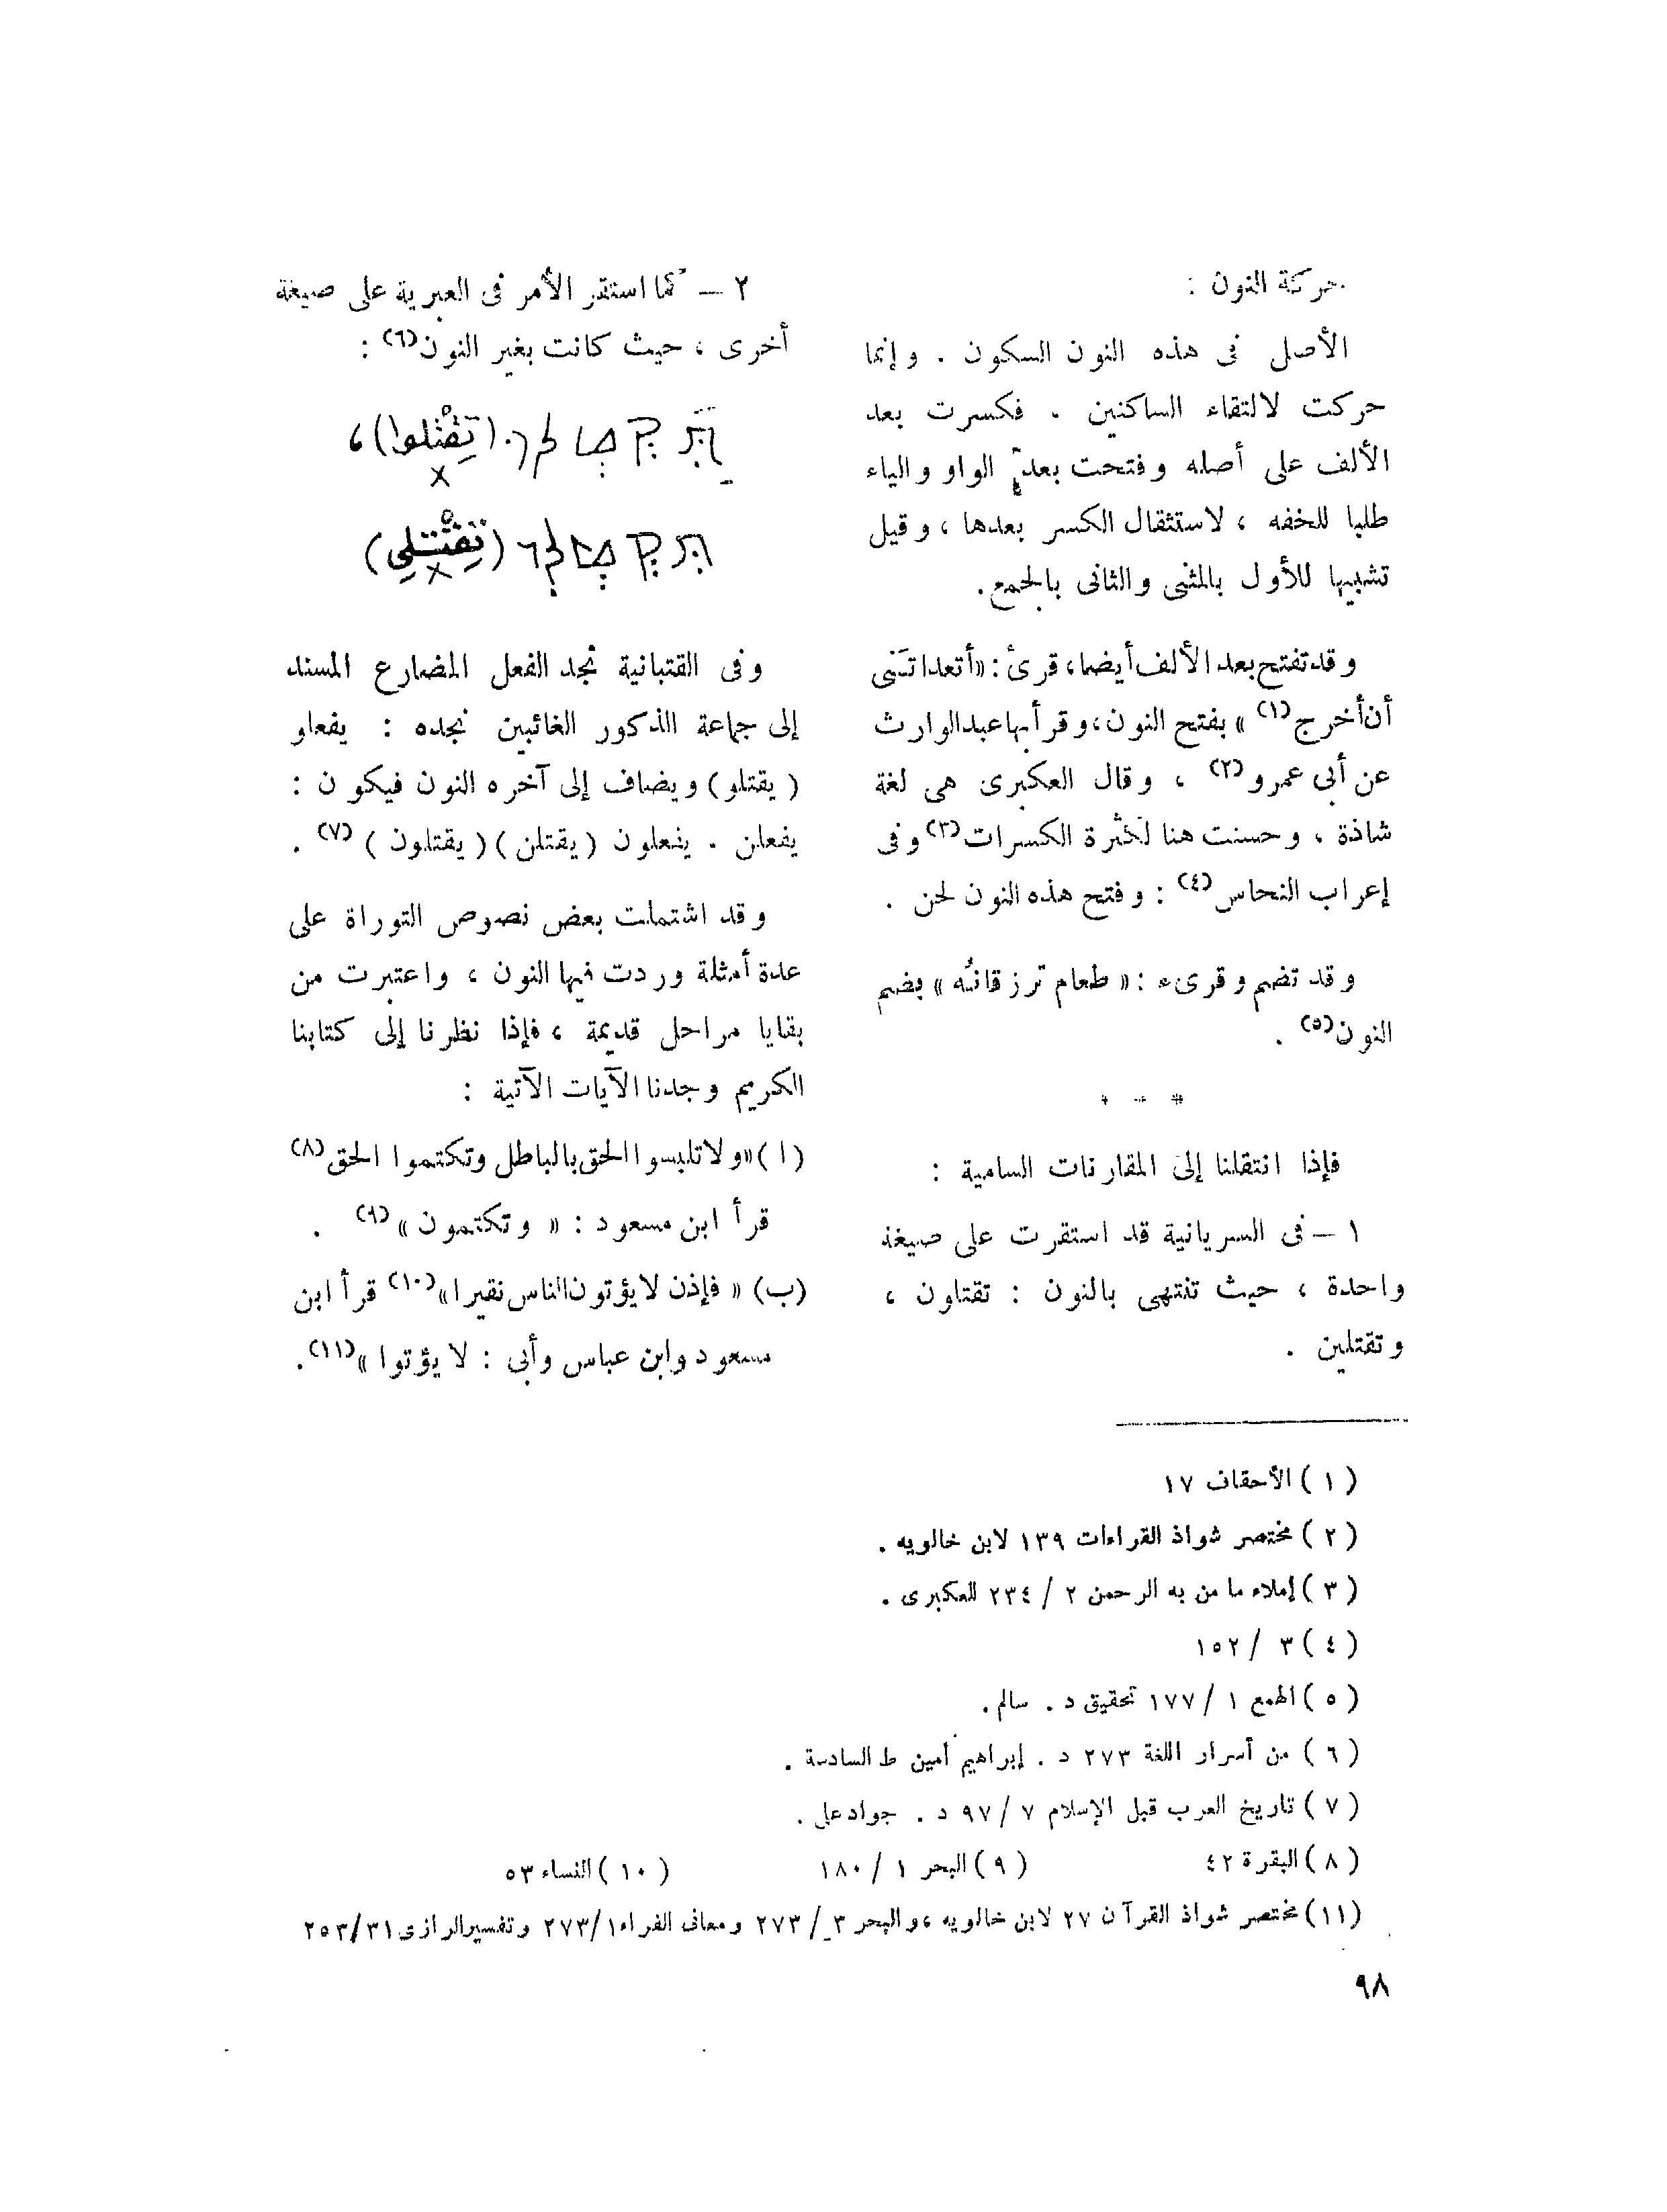 حركة النون :
الأصل فى هذه النون السكون . وإنما
حركت لالتقاء الساكنين . فكسرت بعد
الألف على أصله وفتحت بعد الواو والياء
طلبا للخفه ، لاستثقال الكسر بعدها ، وقيل
تشبيها للأول بالمثنى والثانى بالجمع .
وقد تفتح بعد الألف أيضا، قرىُ : «أتعداتَنى
أن أخرج(١) » بفتح النون، وقرأ بها عبد الوارث
عن أبى عمرو(٢) ، وقال العكبرى هى لغة
شاذة ، وحسنت هنا لكثرة الكسرات(٣) وفى
إعراب النحاس(٤) : وفتح هذه النون لحن .
وقد تضم وقرىء : « طعام ترزقانُه » بضم
النون(٥) .
* * *
فإذا انتقلنا إلى المقارنات السامية :
١ – فى السريانية قد استقرت على صيغة
واحدة ، حيث تنتهى بالنون : تقتلون ،
وتقتلين .
٢ – كما استقر الأمر فى العبرية على صيغة
أخرى ، حيث كانت بغير النون(٦) :
(تِقْتْلوا) ،
(تِقْتْلِي)
وفى القتبانية نجد الفعل المضارع المسند
إلى جماعة الذكور الغائبين نجده : يفعلو
( يقتلو ) ويضاف إلى آخره النون فيكون :
يفعلن . يفعلون ( يقتلن ) ( يقتلون )(٧) .
وقد اشتملت بعض نصوص التوراة على
عدة أمثلة وردت فيها النون ، واعتبرت من
بقايا مراحل قديمة ، فإذا نظرنا إلى كتابنا
الكريم وجدنا الآيات الآتية :
( ا ) «ولا تلبسوا الحق بالباطل وتكتموا الحق(٨)
قرأ ابن مسعود : « وتكتمون »(٩) .
(ب) « فإذن لا يؤتون الناس نقيرا»(١٠) قرأ ابن
مسعود وابن عباس وأبى : لا يؤتوا »(١١) .
( ١ ) الأحقاف ١٧
( ٢ ) مختصر شواذ القراءات ١٣٩ لابن خالويه .
( ٣ ) إملاء ما من به الرحمن ٢ / ٢٣٤ للعكبرى .
( ٤ ) ٣ / ١٥٢
( ٥ ) الهمع ١ / ١٧٧ تحقيق د . سالم .
( ٦ ) من أسرار اللغة ٢٧٣ د . إبراهيم أمين ط السادسة .
( ٧ ) تاريخ العرب قبل الإسلام ٧ / ٩٧ د . جواد على .
( ٨ ) البقرة ٤٢ ( ٩ ) البحر ١ / ١٨٠ ( ١٠ ) النساء ٥٣
(١١) مختصر شواذ القرآن ٢٧ لابن خالويه ، والبحر ٣ / ٢٧٣ ومعانى الفراء ١ / ٢٧٣ وتفسير الرازى ٣١ / ٢٥٣
٩٨